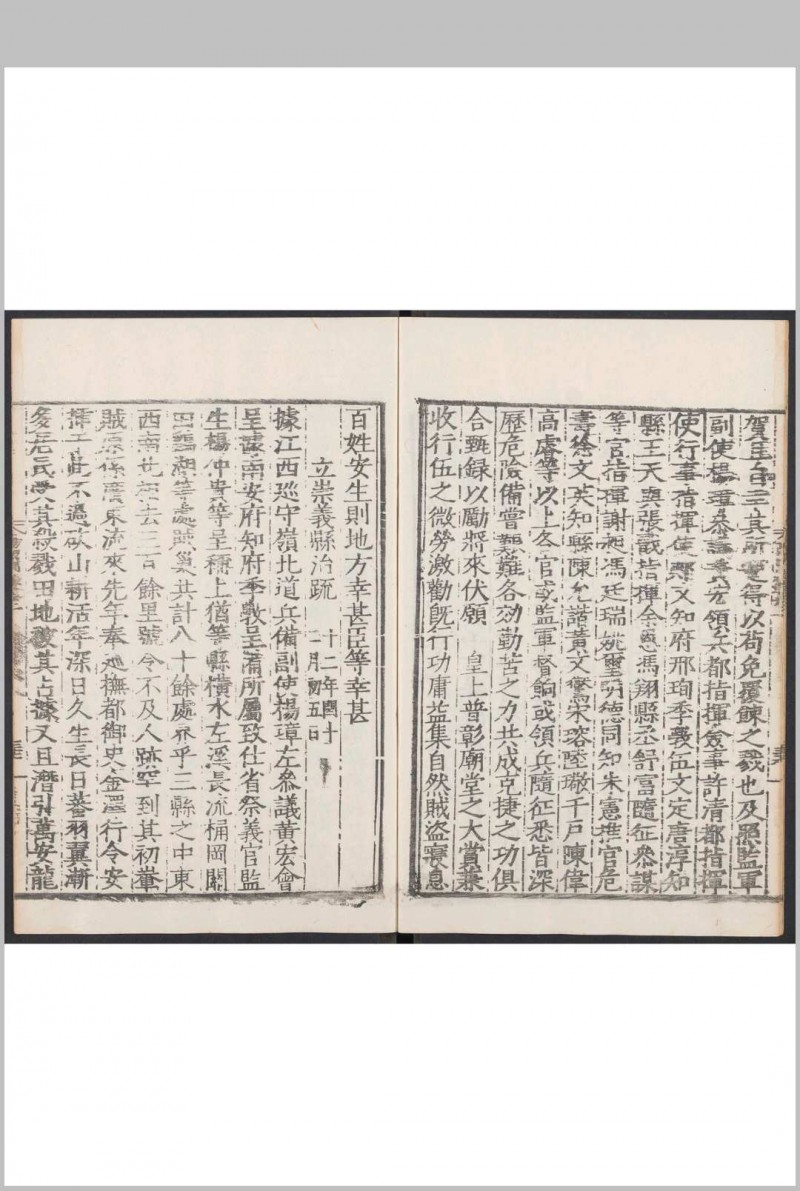 賀臣等三其所更得以苟免覆餗之戮也及照監軍
副使楊璋參議黃宏領兵都指揮僉事許清都指揮
使行事指揮使郟文知府邢珣季斆伍文定唐淳知
縣王天與張戩指揮余恩馮翔縣丞舒富隨征參謀
等官指揮謝昶馮廷瑞姚璽明德同知朱憲推官危
壽徐文英知縣陳允諧黃文鸑宋瑢陸璥千戶陳偉
高睿等以上各官或監軍督餉或領兵隨征悉皆深
歷危險備嘗艱難各效勤苦之力共成克捷之功俱
合甄録以勵將來伏願　皇上普彰廟堂之大賞兼
收行伍之微勞激勸旣行功庸益集自然賊盜寢息
百姓安生則地方幸甚臣等幸甚
立崇義縣治疏
十二年閏十
二月初五日
據江西巡守嶺北道兵備副使楊璋左參議黃宏會
呈據南安府知府季斆呈備所屬致仕省祭義官監
生楊仲貴等呈稱上猶等縣橫水左溪長流桶岡關
田雞湖等處賊巢共計八十餘處界乎三縣之中東
西南北相去三百餘里號令不及人跡罕到其初輋
賊原係廣東流來先年奉巡撫都御史金澤行令安
揷于此不過砍山耕活年深日久生長日蕃羽翼漸
多居民受其殺戮田地被其占據又且潛引萬安龍